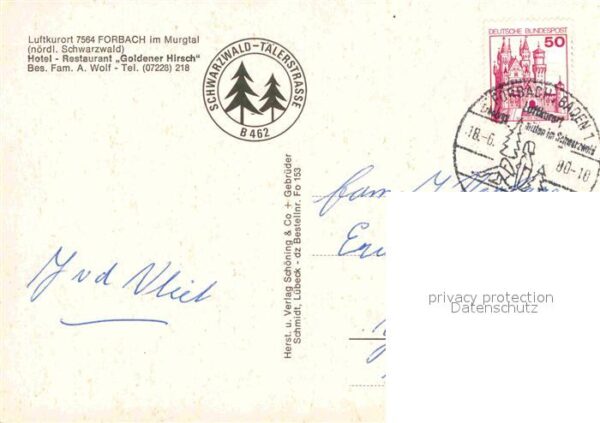 Luftkurort 7564 FORBACH im Murgtal
(nördl. Schwarzwald)
Hotel - Restaurant „Goldener Hirsch"
Bes. Fam. A. Wolf - Tel. (07228) 218
SCHWARZWALD-TÄLERSTRASSE
B 462
DEUTSCHE BUNDESPOST
50
FORBACH, BADEN 1
Luftkurort
mitten im Schwarzwald
18.-6. 80-10
Herst. u. Verlag Schöning & Co + Gebrüder
Schmidt, Lübeck - dz Bestellnr. Fo 153
fam.
J vd Vliet
privacy protection
Datenschutz